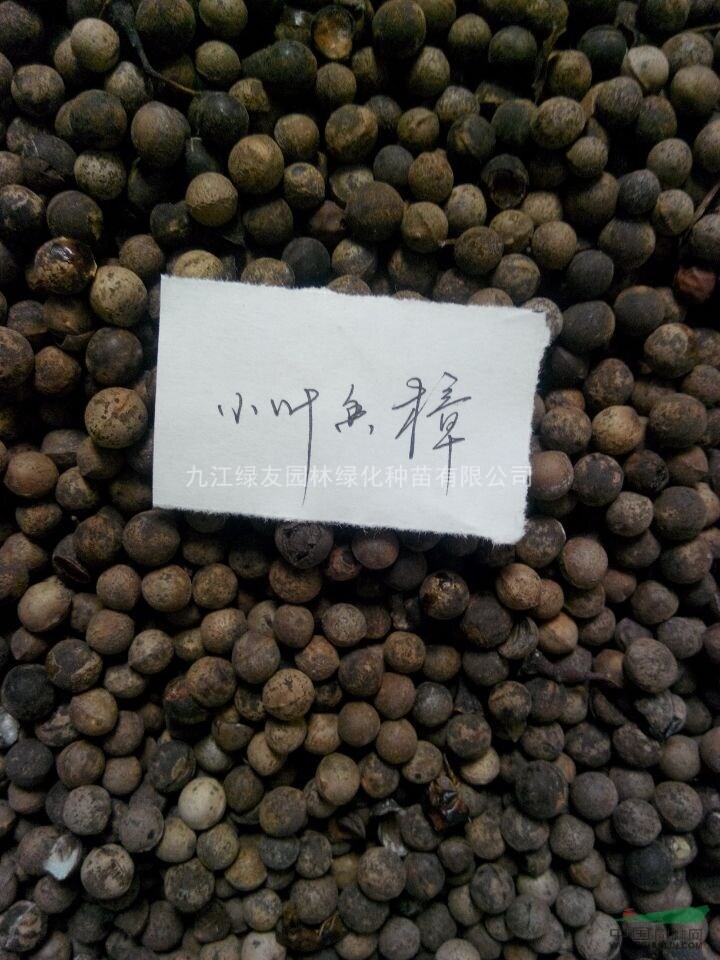 小叶香樟
九江绿友园林绿化种苗有限公司
中国园林网